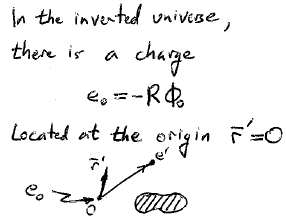 In the inverted universe,
there is a charge
e₀ = -RΦ₀
Located at the origin r̄'=0
r̄' e'
e₀
0